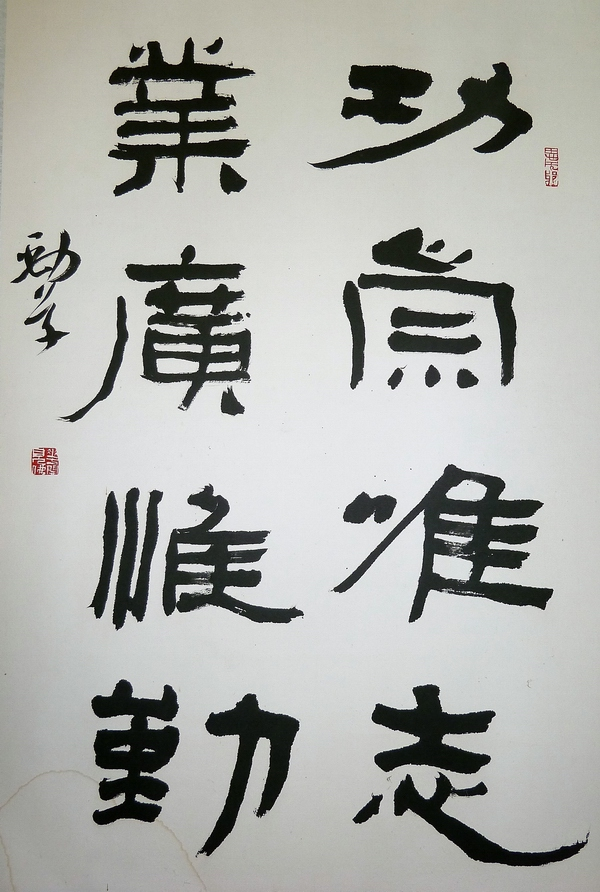 功崇惟志
業廣惟勤
勁草